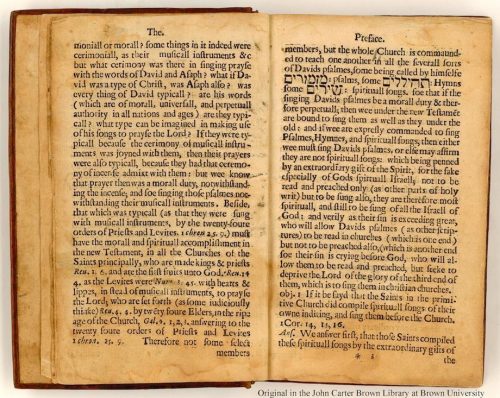 The.
moniall or morall? some things in it indeed were
cerimoniall, as their musicall instruments &c
but what cerimony was there in singing prayse
with the words of David and Asaph? what if Da-
vid was a type of Christ, was Asaph also? was
every thing of David typicall? are his words
(which are of morall, universall, and perpetuall
authority in all nations and ages) are they typi-
call? what type can be imagined in making use
of his songs to prayse the Lord? If they were ty-
picall because the cerimony of musicall instru-
ments was joyned with them, then their prayers
were also typicall, because they had that ceremo-
ny of incense admixt with them: but wee know
that prayer then was a morall duty, notwithstand-
ing the incense; and soe singing those psalmes not-
withstanding their musicall instruments. Beside,
that which was typicall (as that they were sung
with musicall instruments, by the twenty-foure
orders of Priests and Levites. 1 chron 25. 9.) must
have the morall and spirituall accomplishment in
the new Testament, in all the Churches of the
Saints principally, who are made kings & priests
Reu. 1. 6. and are the first fruits unto God. Reu. 14
4. as the Levites were Num. 3. 45. with hearts &
lippes, in stead of musicall instruments, to prayse
the Lord; who are set forth (as some iudiciously
thinke) Reu. 4. 4. by twēty foure Elders, in the ripe
age of the Church, Gal. 4. 1, 2, 3. answering to the
twenty foure orders of Priests and Levites
1 chron. 25. 9. Therefore not some select
members
Preface.
members, but the whole Church is commaund-
ed to teach one another in all the severall sorts
of Davids psalmes, some being called by himselfe
מזמורים: psalmes, some תהילים: Hymns
some שירים: spirituall songs. soe that if the
singing Davids psalmes be a morall duty & ther-
fore perpetuall; then wee under the new Testamēt
are bound to sing them as well as they under the
old: and if wee are expresly commanded to sing
Psalmes, Hymnes, and spirituall songs, then either
wee must sing Davids psalmes, or else may affirm
they are not spirituall songs: which being penned
by an extraordinary gift of the Spirit, for the sake
especially of Gods spirituall Israell, not to be
read and preached only (as other parts of holy
writ) but to be sung also, they are therefore most
spirituall, and still to be sung of all the Israell of
God: and verily as their sin is exceeding great,
who will allow Davids psalmes (as other scrip-
tures) to be read in churches (which is one end)
but not to be preached also, (which is another end
soe their sin is crying before God, who will al-
low them to be read and preached, but seeke to
deprive the Lord of the glory of the third end of
them, which is to sing them in christian churches.
obj. 1 If it be sayd that the Saints in the primi-
tive Church did compile spirituall songs of their
owne inditing, and sing them before the Church.
1Cor. 14, 15, 16.
Ans. We answer first, that those Saints compiled
these spirituall songs by the extraordinary gifts of
* 3
the
Original in the John Carter Brown Library at Brown University